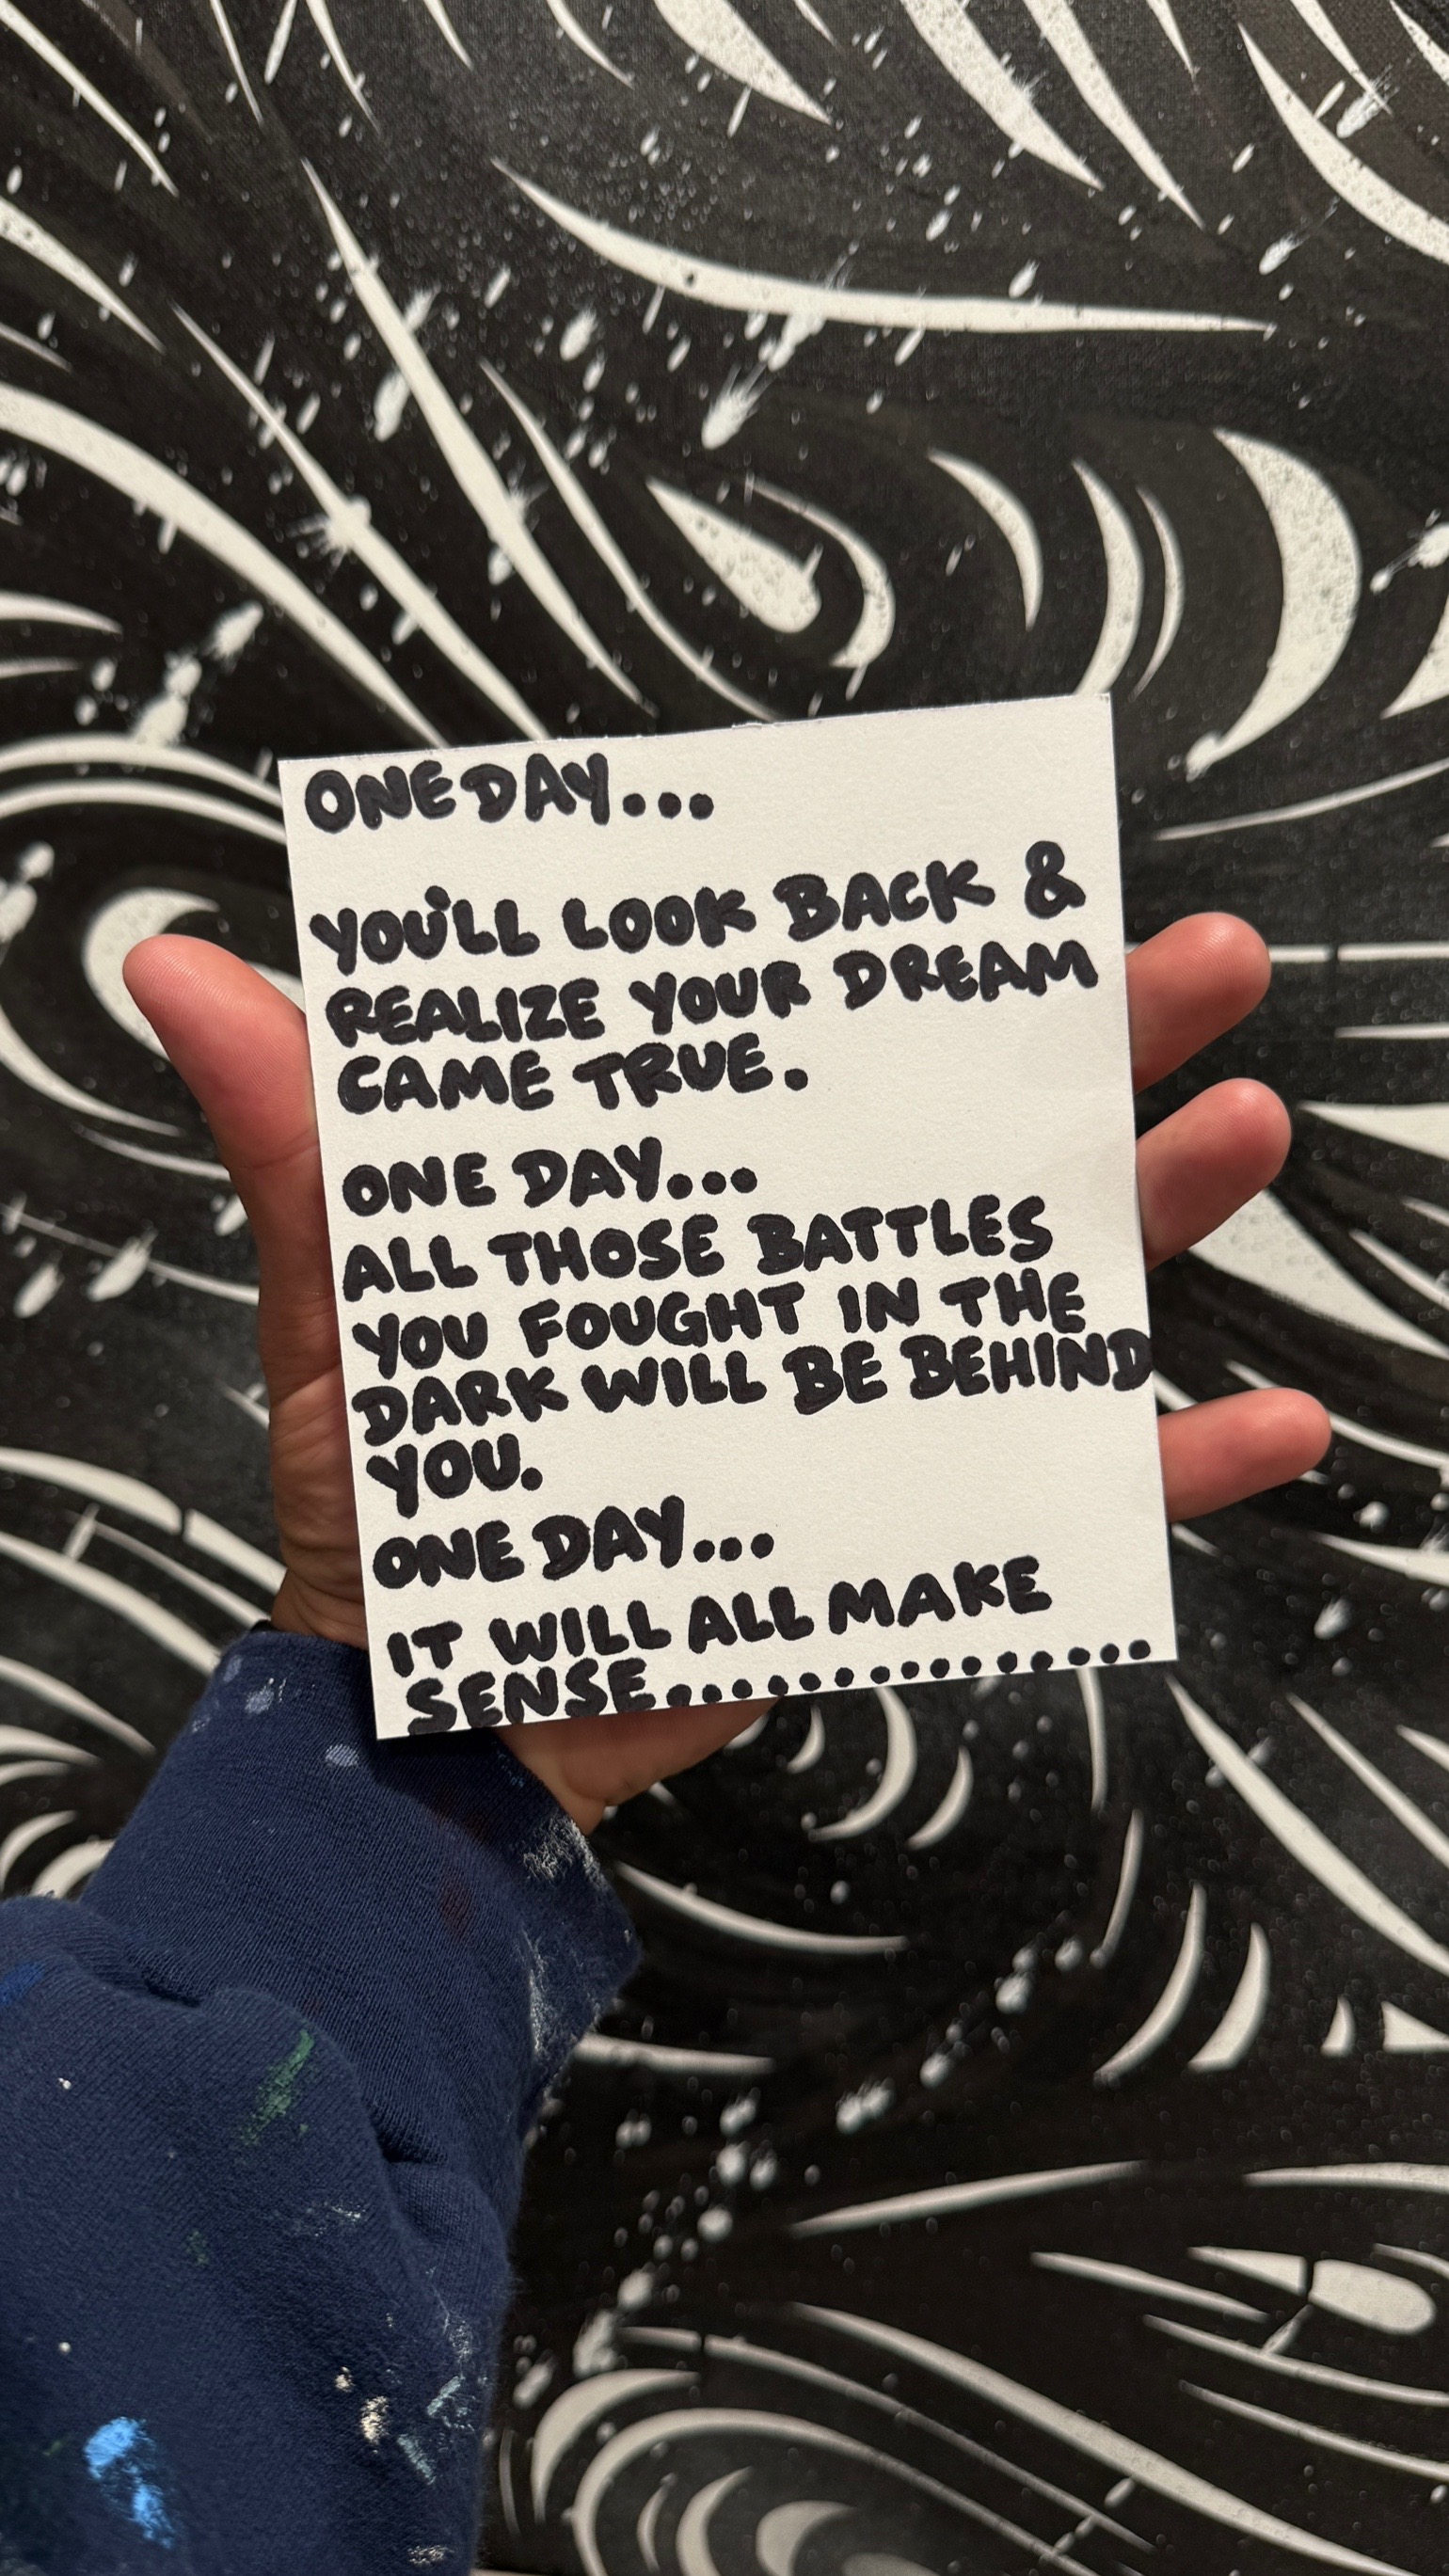 ONE DAY...
YOU'LL LOOK BACK &
REALIZE YOUR DREAM
CAME TRUE.
ONE DAY...
ALL THOSE BATTLES
YOU FOUGHT IN THE
DARK WILL BE BEHIND
YOU.
ONE DAY...
IT WILL ALL MAKE
SENSE.................